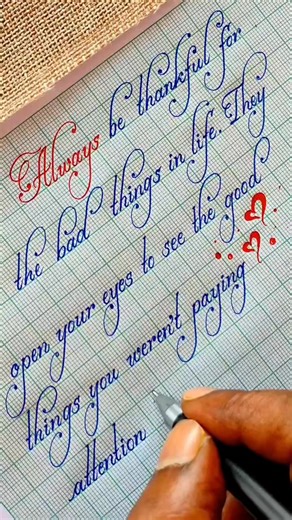 Always be thankful for
the bad things in life. They
open your eyes to see the good
things you weren't paying
attention